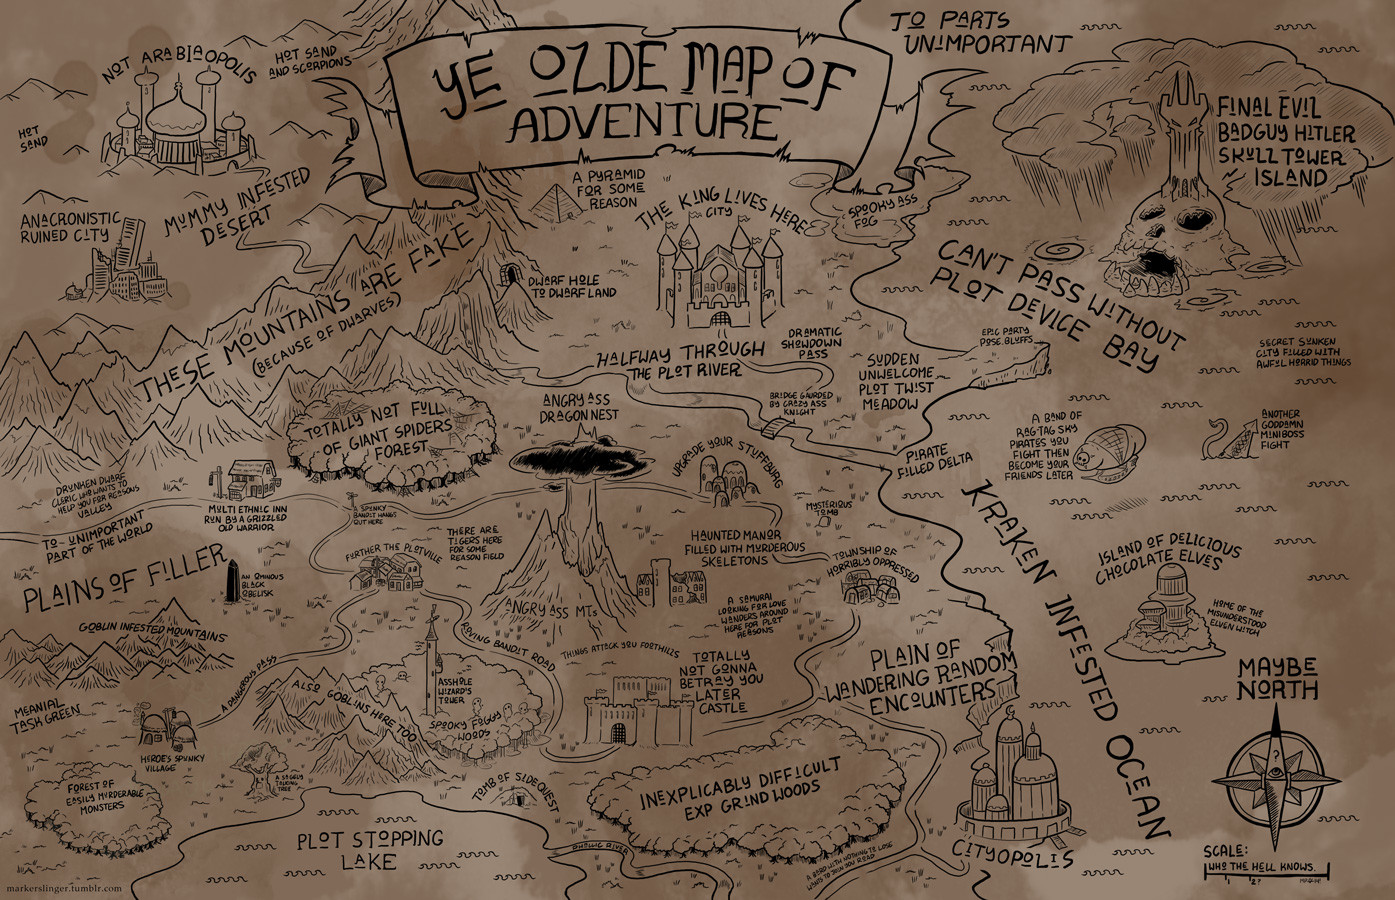 TO PARTS
UNIMPORTANT
YE OLDE MAP OF
ADVENTURE
NOT ARABIAOPOLIS
HOT SAND
AND SCORPIONS
HOT
SAND
FINAL EVIL
BADGUY HITLER
SKULL TOWER
ISLAND
MUMMY INFESTED
DESERT
A PYRAMID
FOR SOME
REASON
THE KING LIVES HERE
CITY
SPOOKY ASS
FOG
ANACRONISTIC
RUINED CITY
THESE MOUNTAINS ARE FAKE
(BECAUSE OF DWARVES)
DWARF HOLE
TO DWARF LAND
CAN'T PASS WITHOUT
PLOT DEVICE BAY
HALFWAY THROUGH
THE PLOT RIVER
DRAMATIC
SHOWDOWN
PASS
SUDDEN
UNWELCOME
PLOT TWIST
MEADOW
EPIC PARTY
POSE BLUFFS
SECRET SUNKEN
CITY FILLED WITH
AWFUL HORRID THINGS
BRIDGE GAURDED
BY CRAZY ASS
KNIGHT
TOTALLY NOT FULL
OF GIANT SPIDERS
FOREST
ANGRY ASS
DRAGON NEST
UPGRADE YOUR STUFFBURG
PIRATE
FILLED DELTA
A BAND OF
RAG-TAG SKY
PIRATES YOU
FIGHT THEN
BECOME YOUR
FRIENDS LATER
ANOTHER
GODDAMN
MINIBOSS
FIGHT
DRUNKEN DWARF
CLERIC WHO WANTS TO
HELP YOU FOR REASONS
VALLEY
MULTI ETHNIC INN
RUN BY A GRIZZLED
OLD WARRIOR
A SPUNKY
BANDIT HANGS
OUT HERE
TO UNIMPORTANT
PART OF THE WORLD
THERE ARE
TIGERS HERE
FOR SOME
REASON FIELD
MYSTERIOUS
TOMB
HAUNTED MANOR
FILLED WITH MURDEROUS
SKELETONS
KRAKEN INFESTED OCEAN
ISLAND OF DELICIOUS
CHOCOLATE ELVES
HOME OF THE
MISUNDERSTOOD
ELVEN WITCH
PLAINS OF FILLER
AN OMINOUS
BLACK
OBELISK
FURTHER THE PLOTVILLE
TOWNSHIP OF
HORRIBLY OPPRESSED
ANGRY ASS MTS
A SAMURAI
LOOKING FOR LOVE
WANDERS AROUND
HERE FOR PLOT
REASONS
GOBLIN INFESTED MOUNTAINS
ROVING BANDIT ROAD
THINGS ATTACK YOU FOOTHILLS
A DANGEROUS PASS
TOTALLY
NOT GONNA
BETRAY YOU
LATER
CASTLE
PLAIN OF
WANDERING RANDOM
ENCOUNTERS
MAYBE
NORTH
ASSHOLE
WIZARD'S
TOWER
SPOOKY FOGGY
WOODS
ALSO GOBLINS HERE TOO
MEANIAL
TASK GREEN
HEROE'S SPUNKY
VILLAGE
A SAGELY
TALKING
TREE
TOMB OF SIDEQUEST
FOREST OF
EASILY MURDERABLE
MONSTERS
INEXPLICABLY DIFFICULT
EXP GRIND WOODS
PLOT STOPPING
LAKE
PHALLIC RIVER
A BARD WITH NOTHING TO LOSE
WANTS TO JOIN YOU ROAD
CITYOPOLIS
?
SCALE:
WHO THE HELL KNOWS.
1 2?
markerslinger.tumblr.com